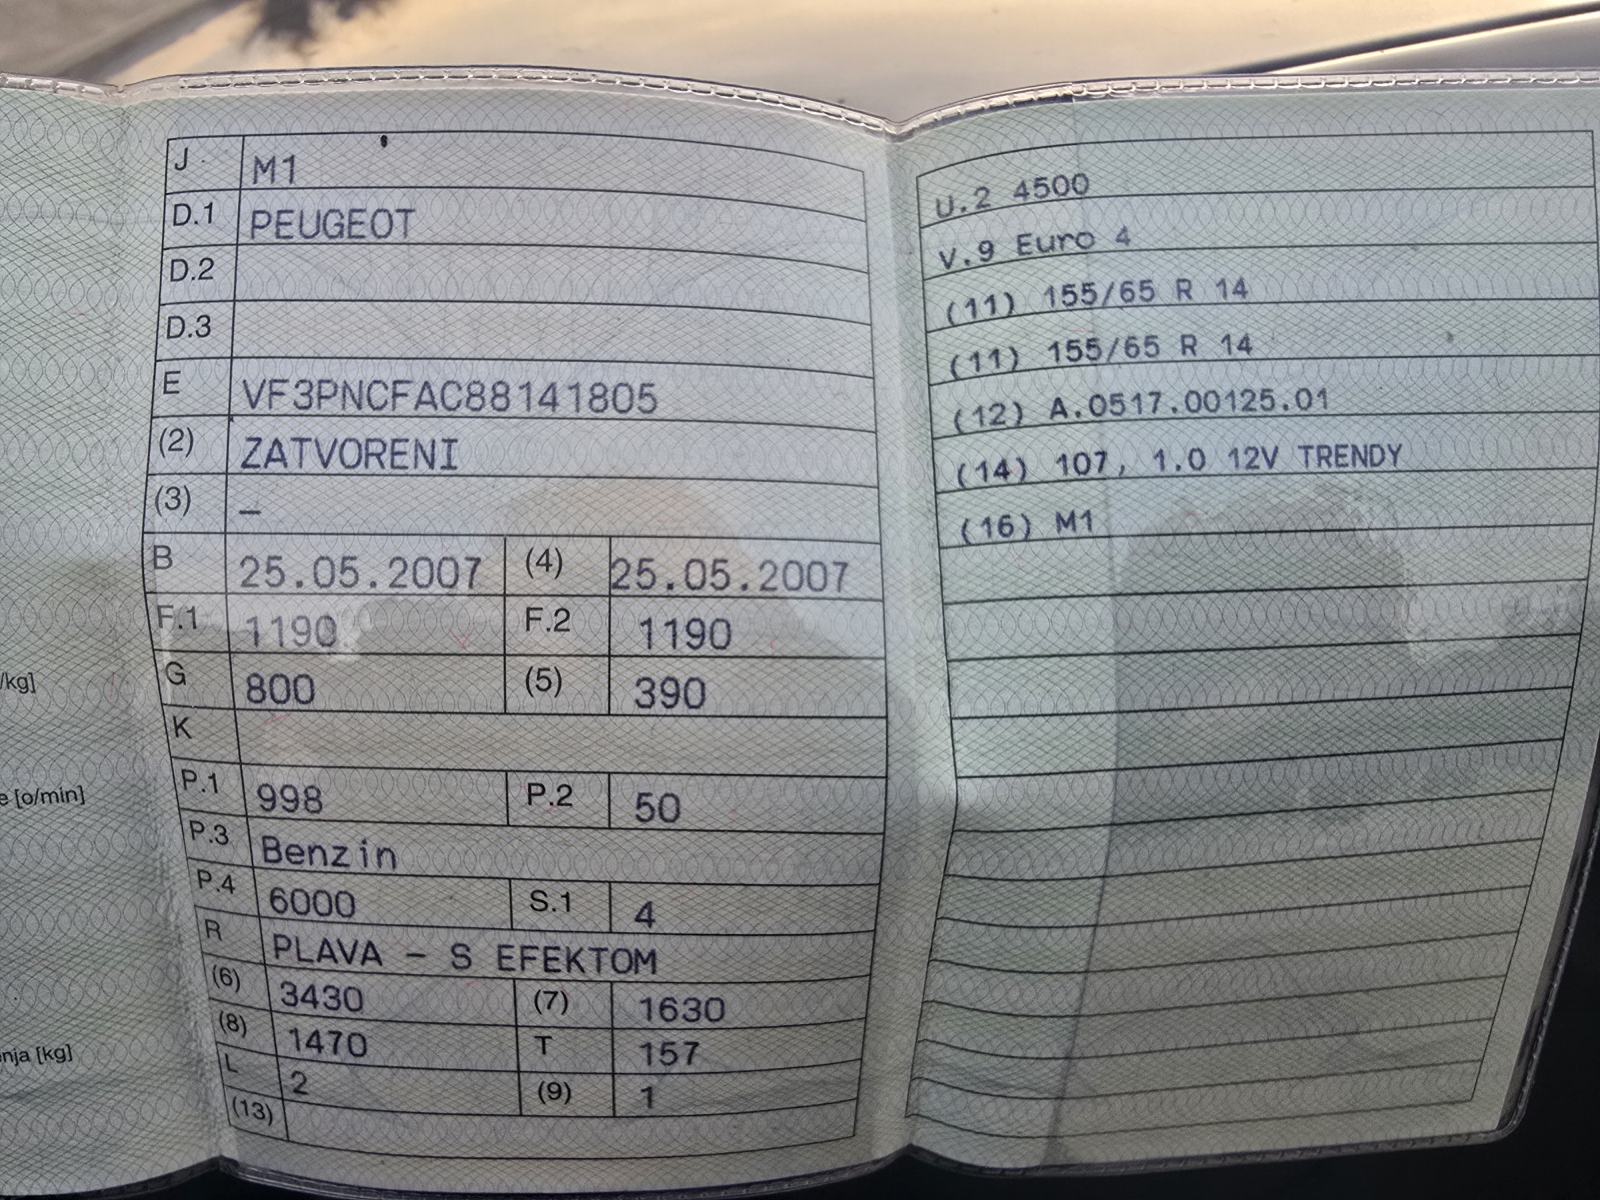 /kg]
e [o/min]
nja [kg]
J M1
D.1 PEUGEOT
D.2
D.3
E VF3PNCFAC88141805
(2) ZATVORENI
(3) –
B 25.05.2007 (4) 25.05.2007
F.1 1190 F.2 1190
G 800 (5) 390
K
P.1 998 P.2 50
P.3 Benzin
P.4 6000 S.1 4
R PLAVA – S EFEKTOM
(6) 3430 (7) 1630
(8) 1470 T 157
L 2 (9) 1
(13)
U.2 4500
V.9 Euro 4
(11) 155/65 R 14
(11) 155/65 R 14
(12) A.0517.00125.01
(14) 107, 1.0 12V TRENDY
(16) M1